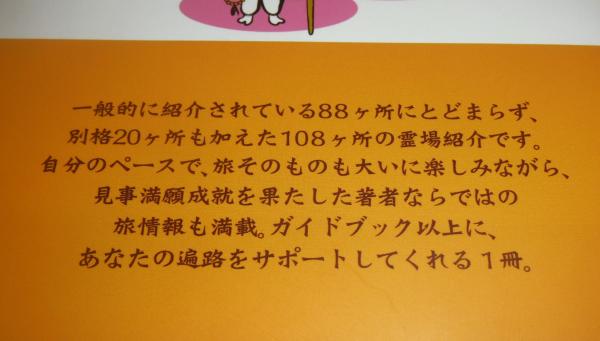 一般的に紹介されている88ヶ所にとどまらず、
別格20ヶ所も加えた108ヶ所の霊場紹介です。
自分のペースで、旅そのものも大いに楽しみながら、
見事満願成就を果たした著者ならではの
旅情報も満載。ガイドブック以上に、
あなたの遍路をサポートしてくれる1冊。